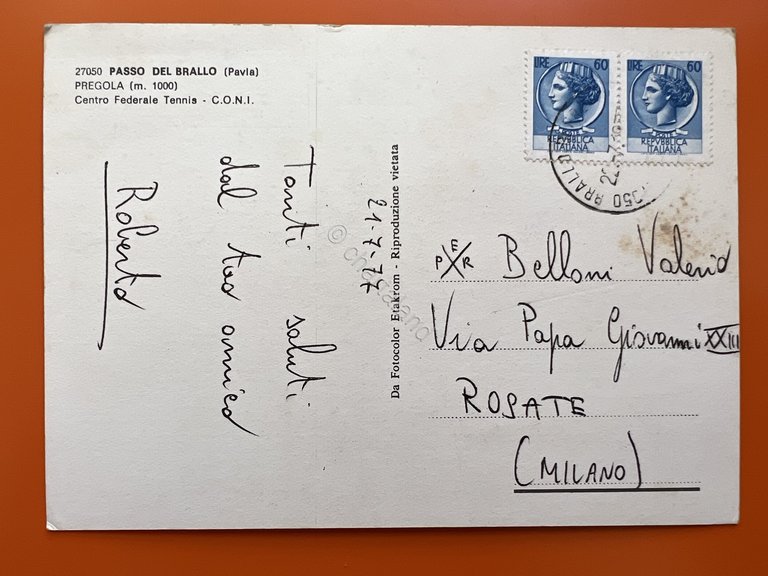 27050 PASSO DEL BRALLO (Pavia)
PREGOLA (m. 1000)
Centro Federale Tennis - C.O.N.I.
Tanti saluti
dal tuo amico
Roberto
21-7-77
Da Fotocolor Etakrom - Riproduzione vietata
LIRE 60
REPVBBLICA
ITALIANA
LIRE 60
POSTE
REPVBBLICA
ITALIANA
PER Belloni Valerio
Via Papa Giovanni XXIII
ROSATE
(MILANO)